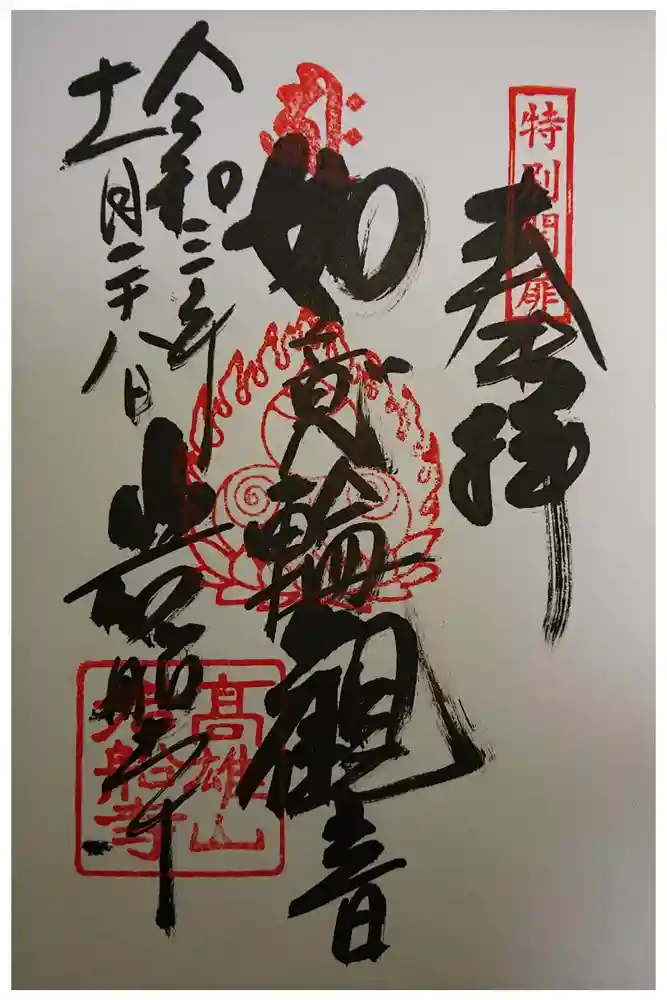 特別開扉
奉拝
如意輪觀音
令和三年
十一月二十八日
岩船寺
高雄山
岩船寺